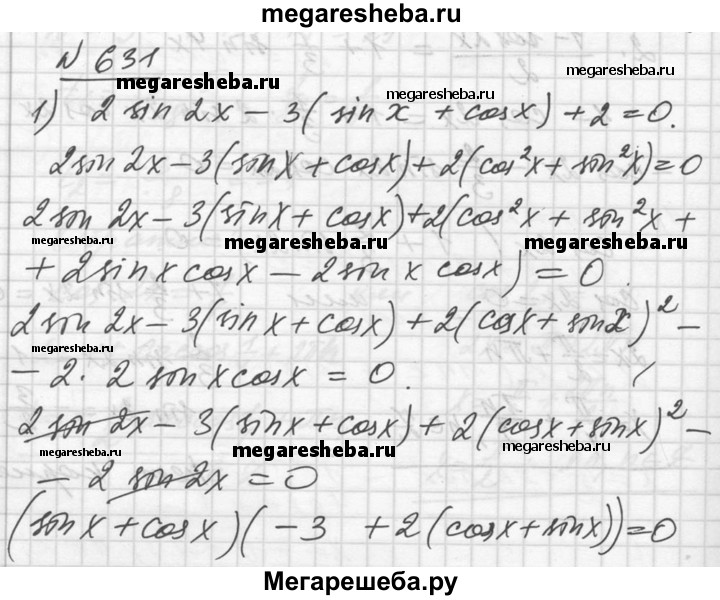 megaresheba.ru
N 631
megaresheba.ru megaresheba.ru
1) 2 sin 2x − 3(sin x + cos x) + 2 = 0.
megaresheba.ru
2 sin 2x − 3(sin x + cos x) + 2(cos²x + sin²x) = 0
2 sin 2x − 3(sin x + cos x) + 2(cos²x + sin²x +
megaresheba.ru megaresheba.ru megaresheba.ru
+ 2 sin x cos x − 2 sin x cos x) = 0.
2 sin 2x − 3(sin x + cos x) + 2(cos x + sin x)² −
− 2 · 2 sin x cos x = 0.
2 sin 2x − 3(sin x + cos x) + 2(cos x + sin x)² −
megaresheba.ru megaresheba.ru megaresheba.ru
− 2 sin 2x = 0
(sin x + cos x)(−3 + 2(cos x + sin x)) = 0
Мегарешеба.ру